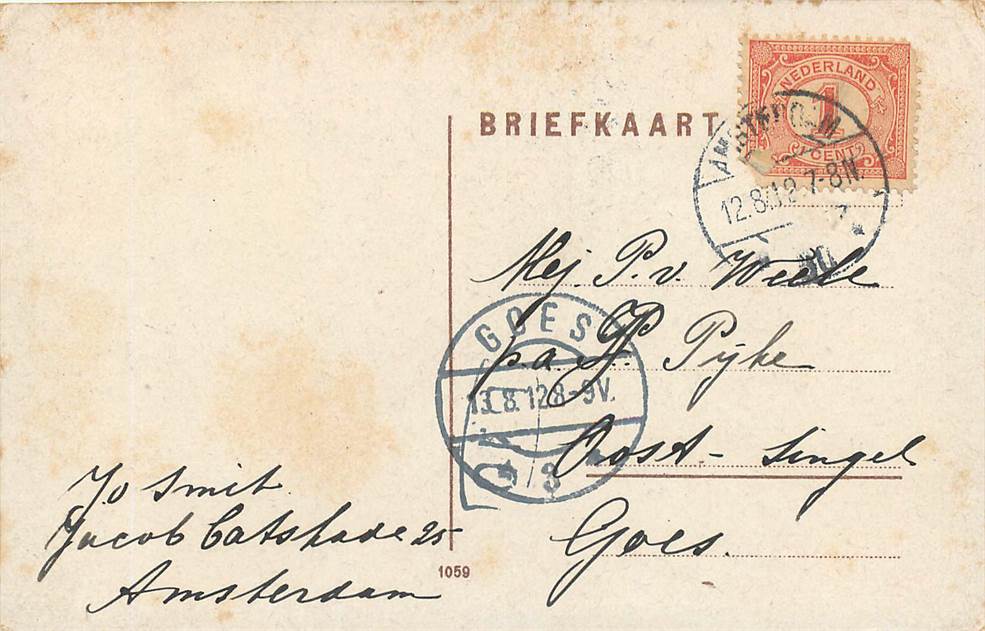 BRIEFKAART
NEDERLAND
1
CENT
AMSTERDAM
12.8.12 7-8N
Mej. P. v. Weele
p.a. P. Pijke
Oost-Singel
Goes.
GOES
13.8.12 8-9V.
3
Jo Smit
Jacob Catskade 25
Amsterdam
1059